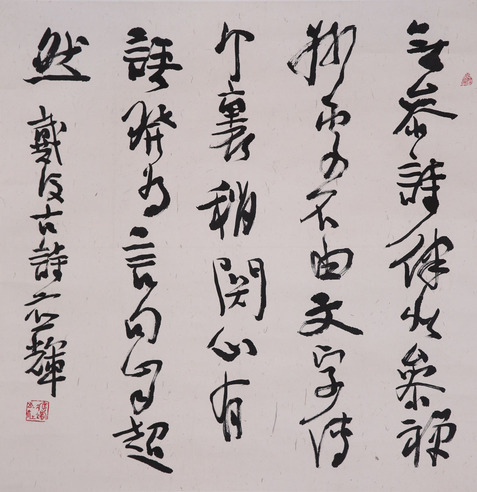 參詩律似參禪
妙趣不由文字傳
个裏稍関心有
語發為言句自超
然 戴復古詩 輝